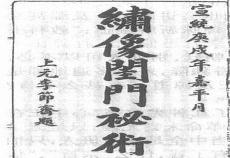 宣統庚戌年嘉平月
繡像閨門祕術
上元李節齋題